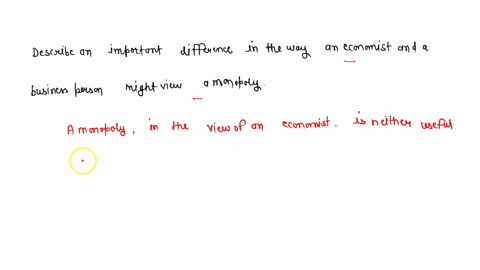 Describe an important difference in the way an economist and a
business person might view a monopoly.
A monopoly, in the view of an economist, is neither useful